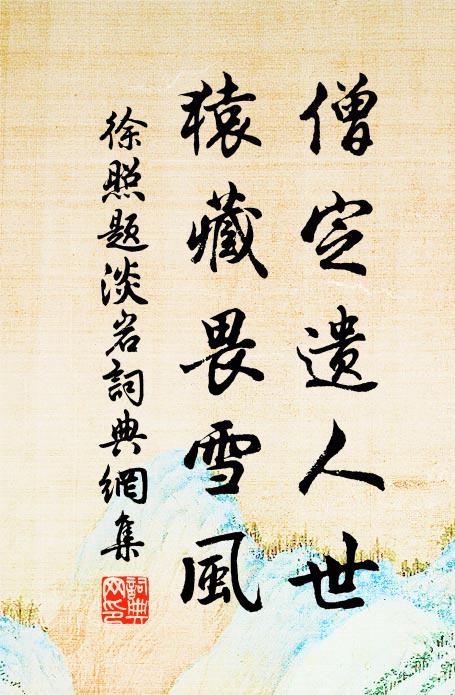 僧定遺人世
猿藏畏雪風
徐照題淡岩詞典網集
詞典网印